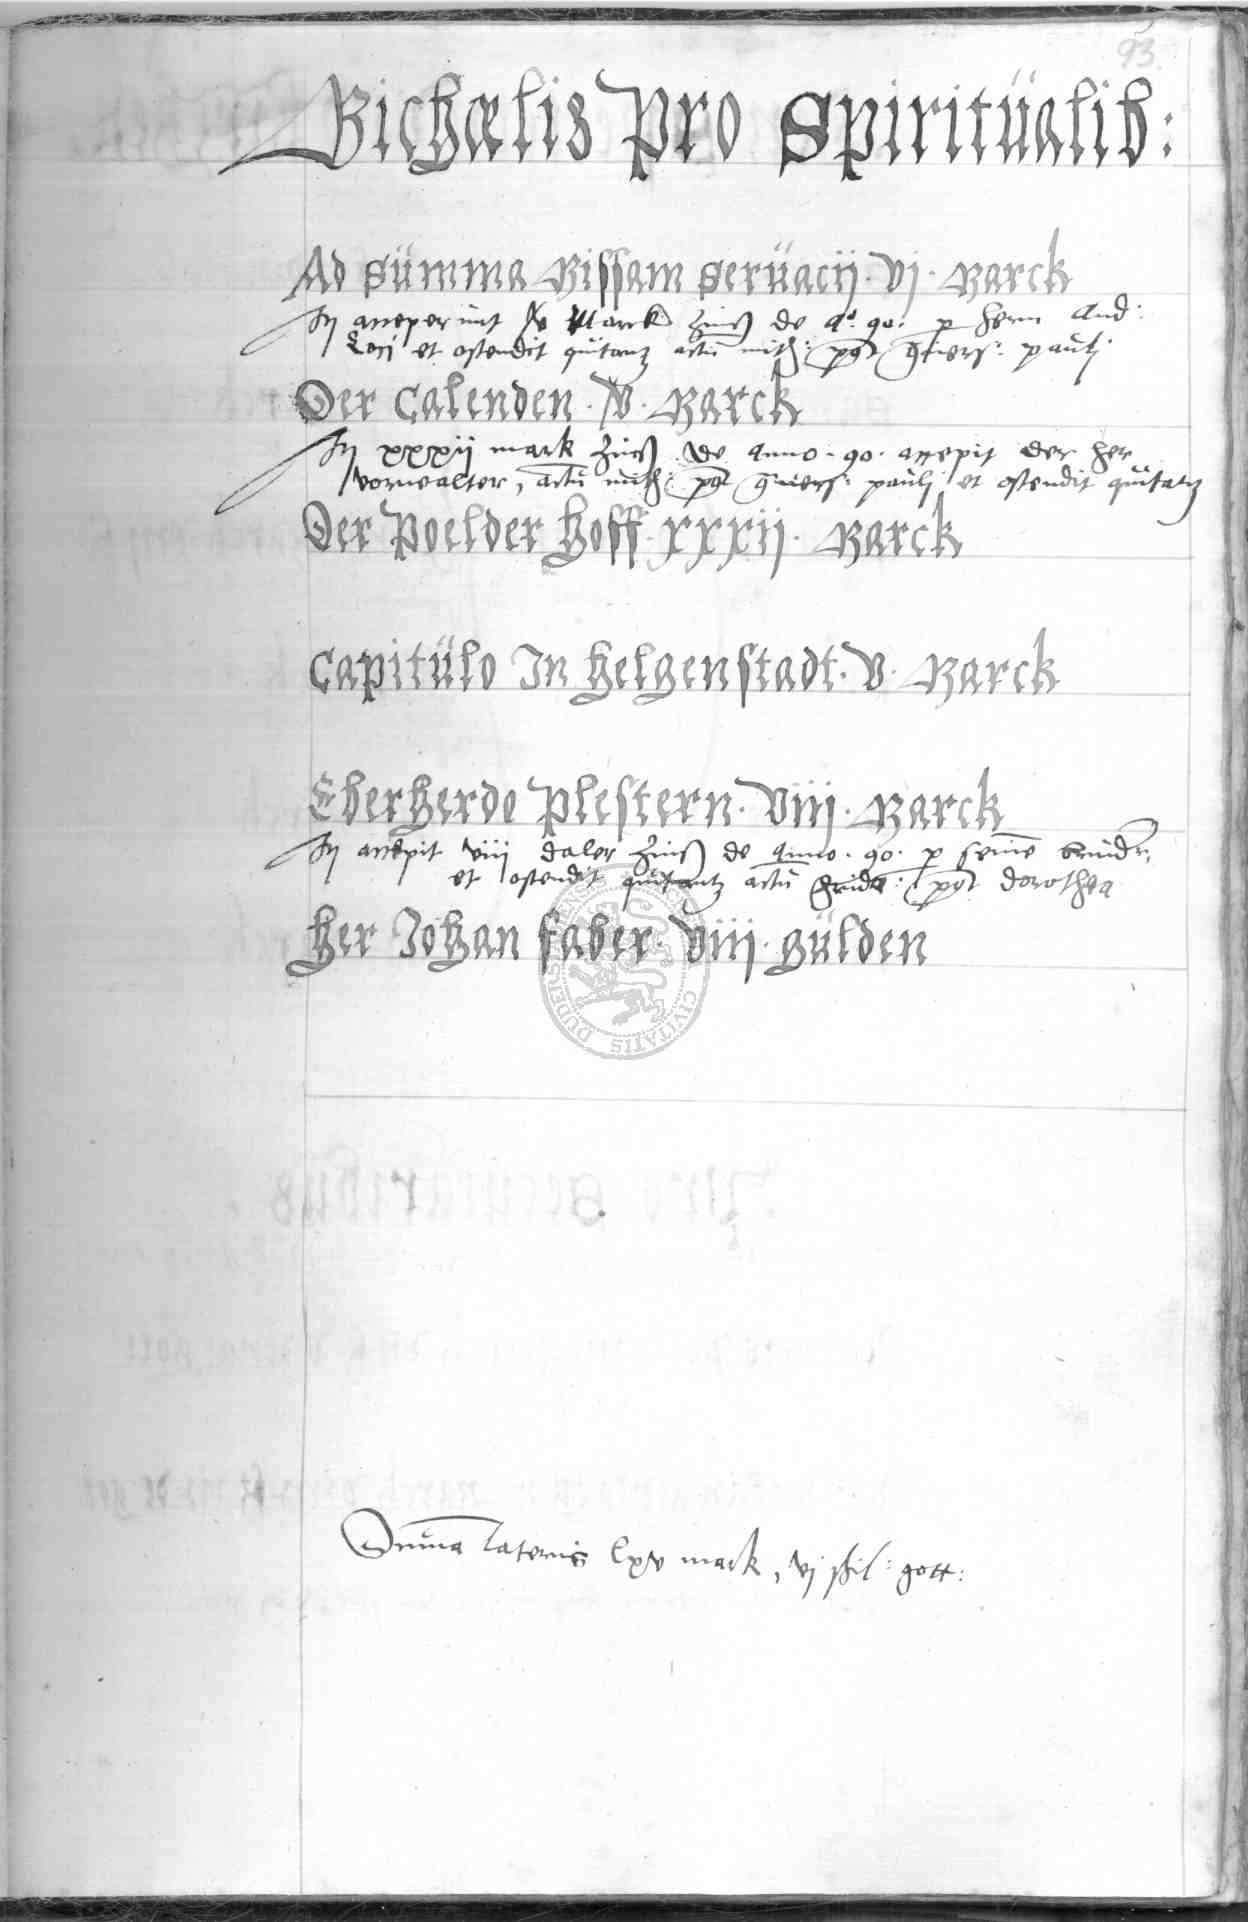 93.
Michaelis pro Spiritüalib:
Ad Sümma Missam Seruacij. vj. Marck
acceperunt v Marck zinß de a°. 90. p hern And:
et ostendit quitantz actu mich: pgt conuers: pauli
Der Calenden. v. Marck
xxxij mark zinß de Anno. 90. accepit der her
vorwalter, actu mich: pgt conuers: pauli et ostendit quitatz
Der Poelder hoff. xxxij. Marck
Capitülo In helgenstadt. v. Marck
Eberherdo Plestern. viij. Marck
accepit viij daler zinß de Anno. 90. p seinē brudr:
et ostendit quitantz actū frida: pgt dorothea
her Johan faber. viij. gülden
Suma lateris lxv mark, vj ßil: gott:
CIVITATIS DUDERS